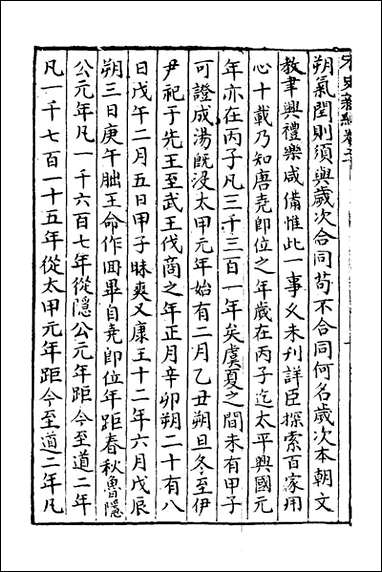 宋史新編卷
朔氣閏則須與歲次合同苟不合同何名歲次本朝文
教聿興禮樂咸備惟此一事久未刋詳臣探索百家用
心十載乃知唐堯卽位之年歲在丙子迄太平興國元
年亦在丙子凡三千三百一年矣虞夏之間未有甲子
可證成湯旣沒太甲元年始有二月乙丑朔旦冬至伊
尹祀于先王至武王伐商之年正月辛卯朔二十有八
日戊午二月五日甲子昧爽又康王十二年六月戊辰
朔三日庚午朏王命作冊畢自堯卽位年距春秋魯隱
公元年凡一千六百七年從隱公元年距今至道二年
凡一千七百一十五年從太甲元年距今至道二年凡